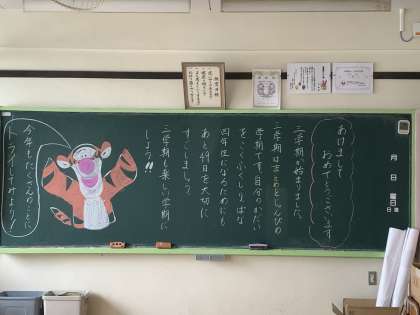 月 日 曜日
日直
あけまして
おめでとうございます
三学期が始まりました。
三学期はまとめとじゅんびの
学期です。自分のかだい
をこくふくしりっぱな
四年生になるためにも
あと49日を大切に
すごしましょう。
三学期も楽しい学期に
しよう!!
今年もたくさんのことに
トライしてみよう!